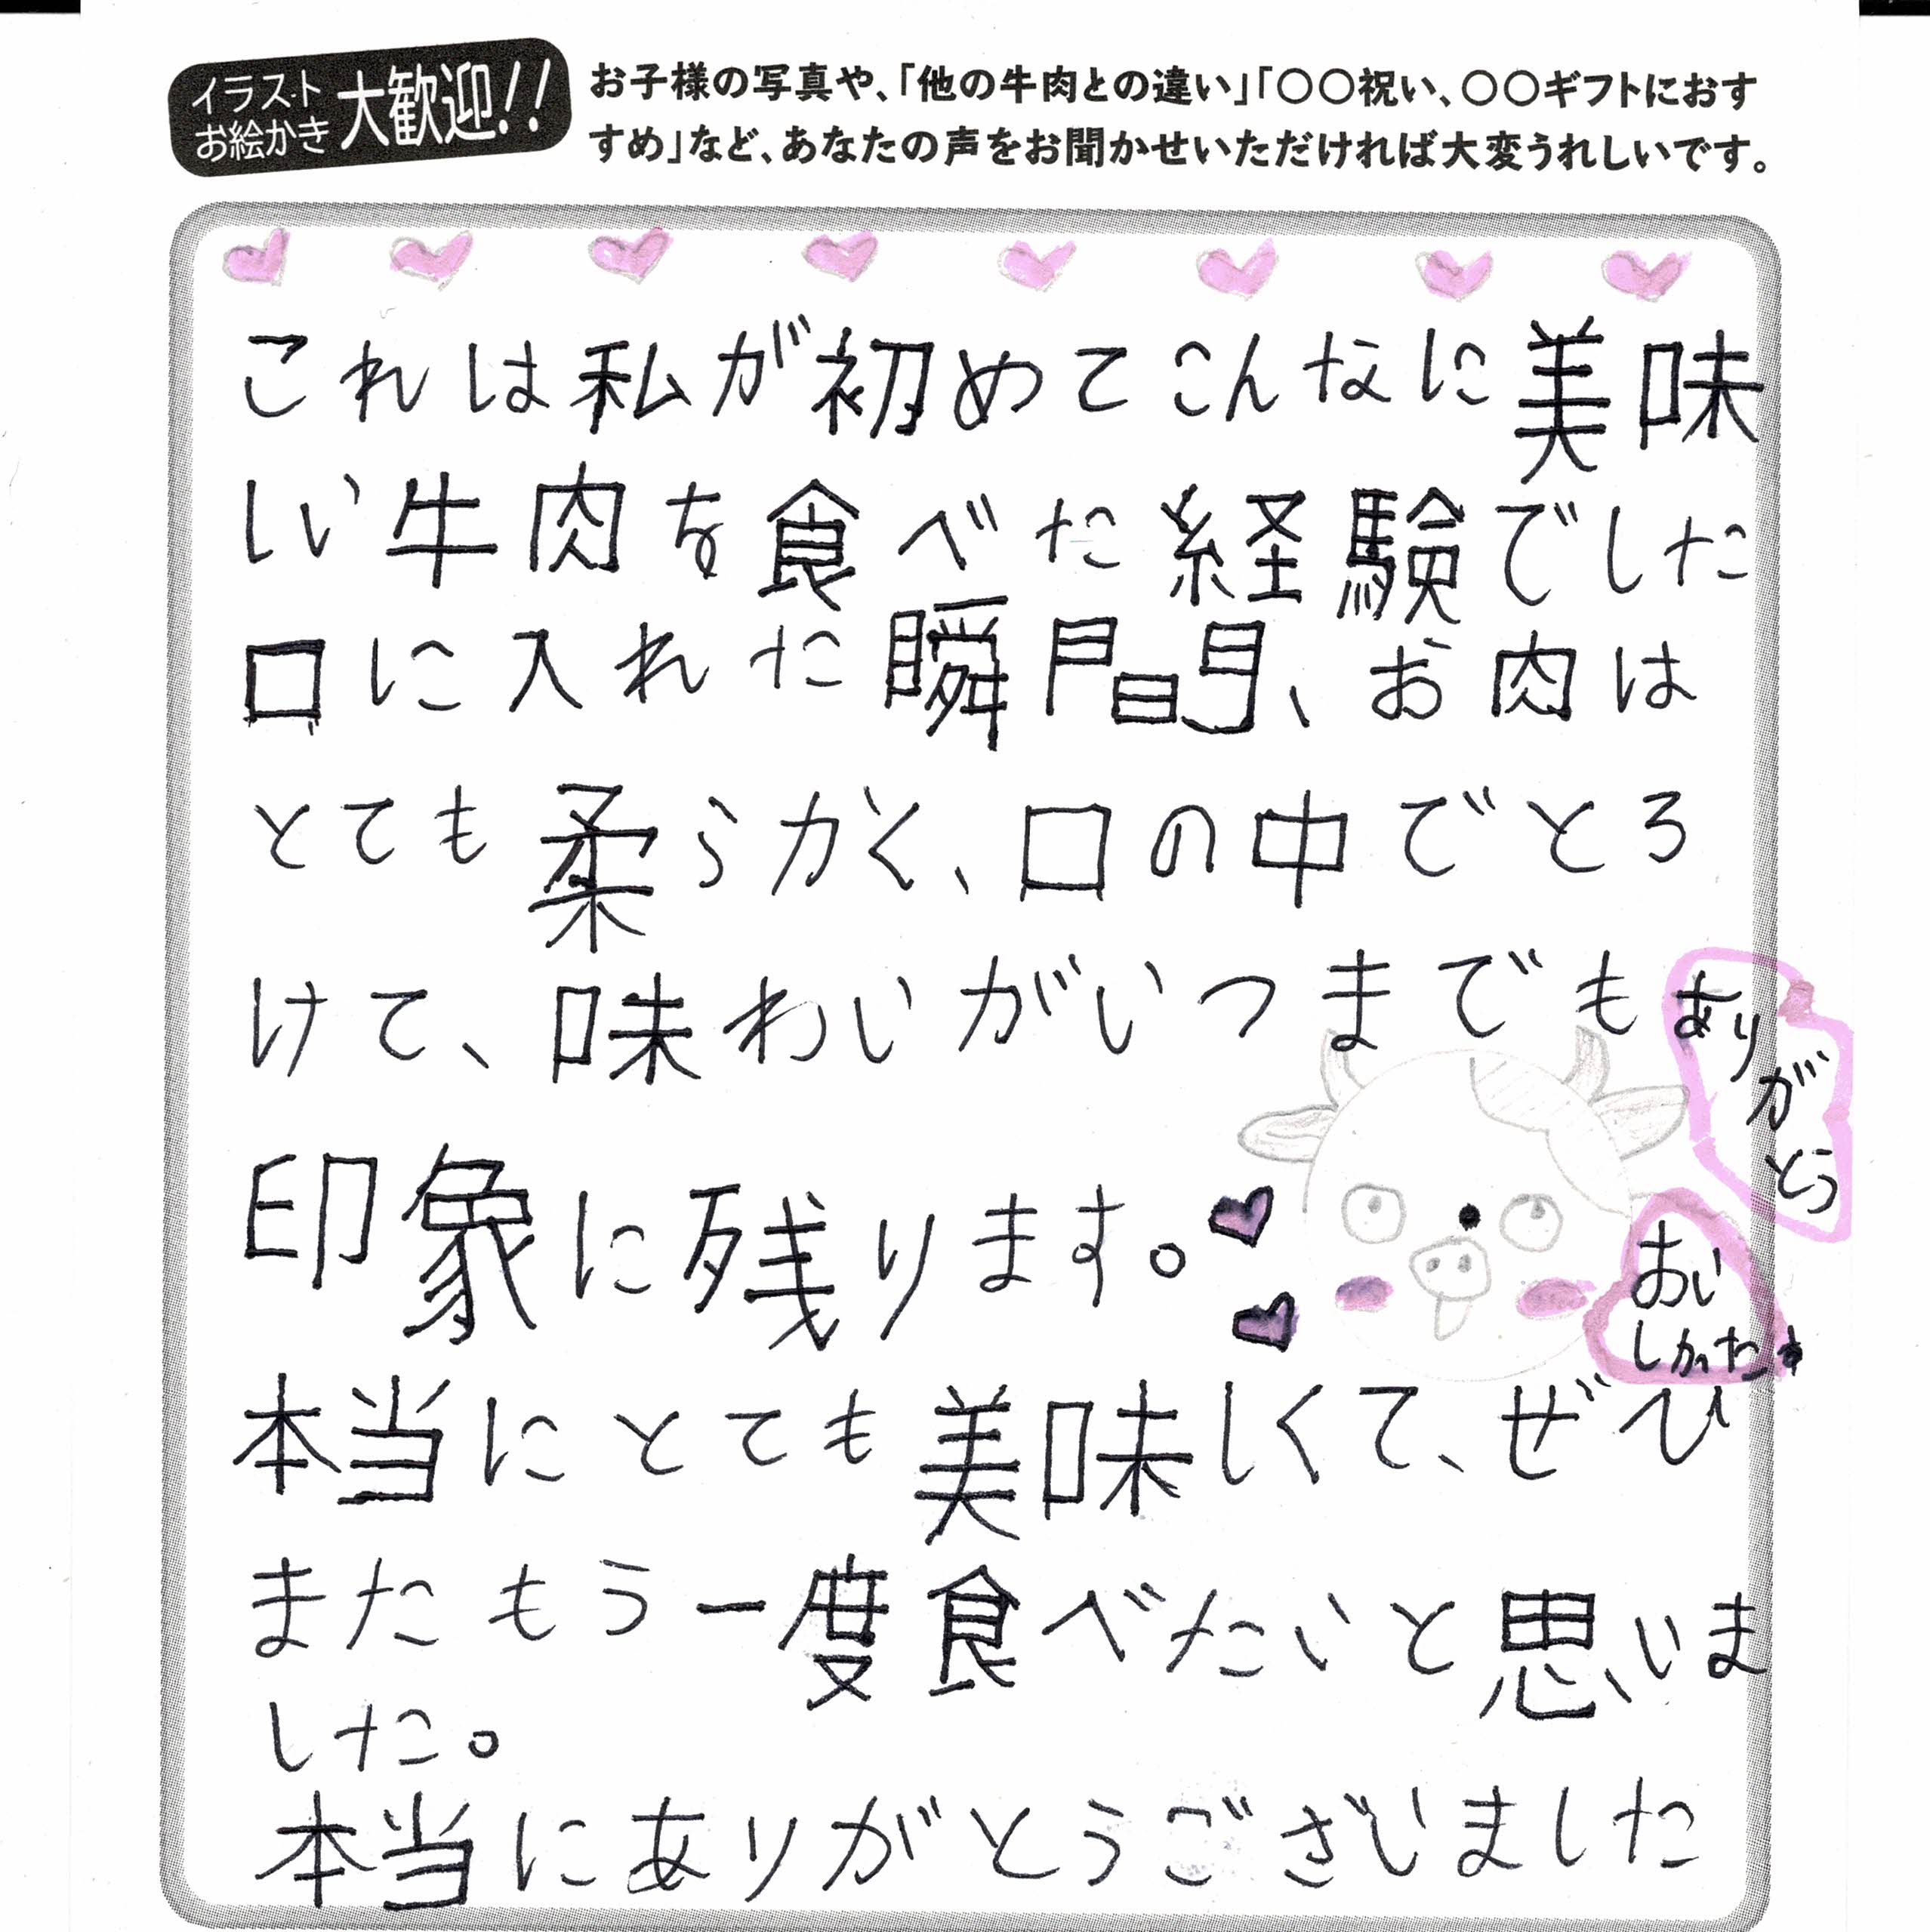 イラスト
お絵かき
大歓迎!!
お子様の写真や、「他の牛肉との違い」「〇〇祝い、〇〇ギフトにおす
すめ」など、あなたの声をお聞かせいただければ大変うれしいです。
これは私が初めてこんなに美味
しい牛肉を食べた経験でした
口に入れた瞬間、お肉は
とても柔らかく、口の中でとろ
けて、味わいがいつまでも
印象に残ります。
ありがとう
おい
しかった
本当にとても美味しくて、ぜひ
またもう一度食べたいと思いま
した。
本当にありがとうございました